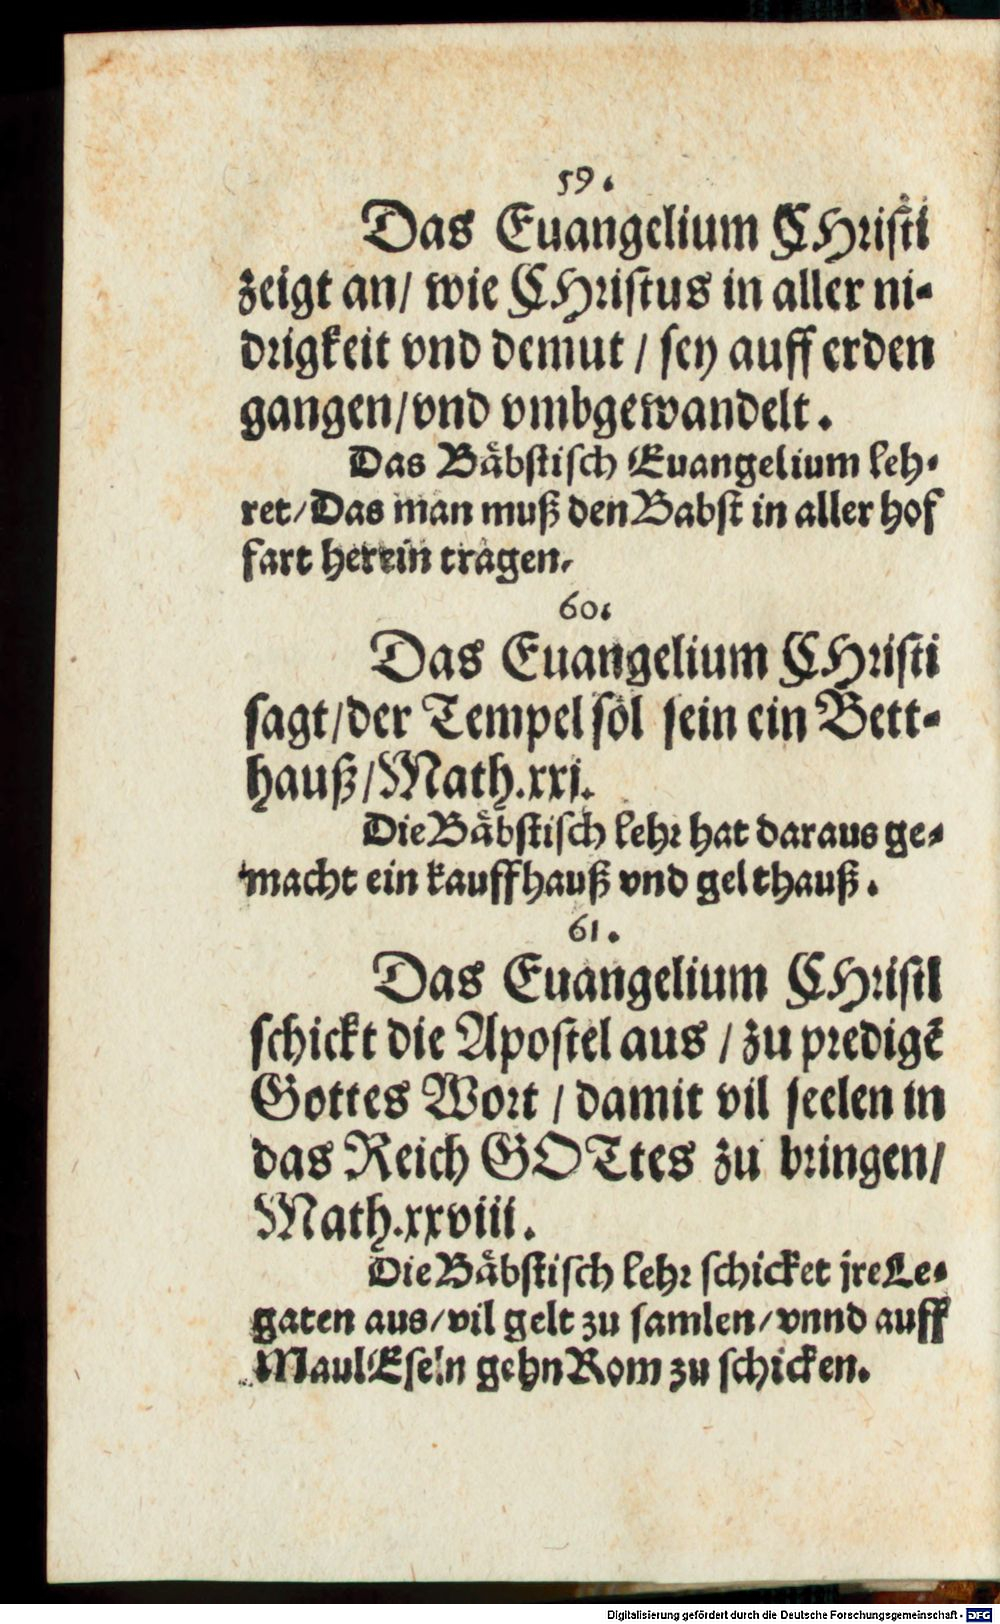 59.
Das Euangelium CHristi
zeigt an/ wie CHristus in aller ni-
drigkeit vnd demut / sey auff erden
gangen/vnd vmbgewandelt.
Das Bäbstisch Euangelium leh-
ret/Das man muß den Babst in aller hof
fart herein tragen.
60.
Das Euangelium CHristi
sagt/der Tempel sol sein ein Bett-
hauß/Math.xxi.
Die Bäbstisch lehr hat daraus ge-
macht ein kauffhauß vnd gelthauß.
61.
Das Euangelium CHristi
schickt die Apostel aus / zu predigē
Gottes Wort / damit vil seelen in
das Reich GOTtes zu bringen/
Math.xxviii.
Die Bäbstisch lehr schicket jre Le-
gaten aus/vil gelt zu samlen/vnnd auff
MaulEseln gehn Rom zu schicken.
Digitalisierung gefördert durch die Deutsche Forschungsgemeinschaft - DFG